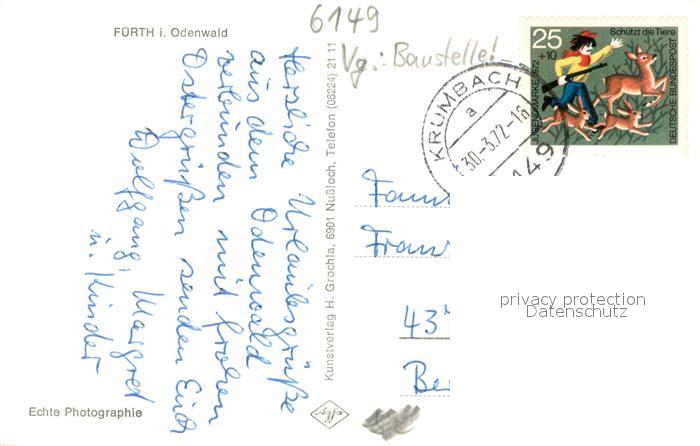 6149
Vg.: Baustelle!
FÜRTH i. Odenwald
Herzliche Urlaubsgrüße
aus dem Odenwald
verbunden mit frohen
Ostergrüßen senden Euch
Wolfgang, Margret
u. Kinder
Kunstverlag H. Grochla, 6901 Nußloch, Telefon (06224) 21 11
Echte Photographie
Agfa
KRUMBACH
a
30.-3.72-16
149
Schützt die Tiere
25
+10
JUGENDMARKE 1972
DEUTSCHE BUNDESPOST
Fran
43
Be
privacy protection
Datenschutz